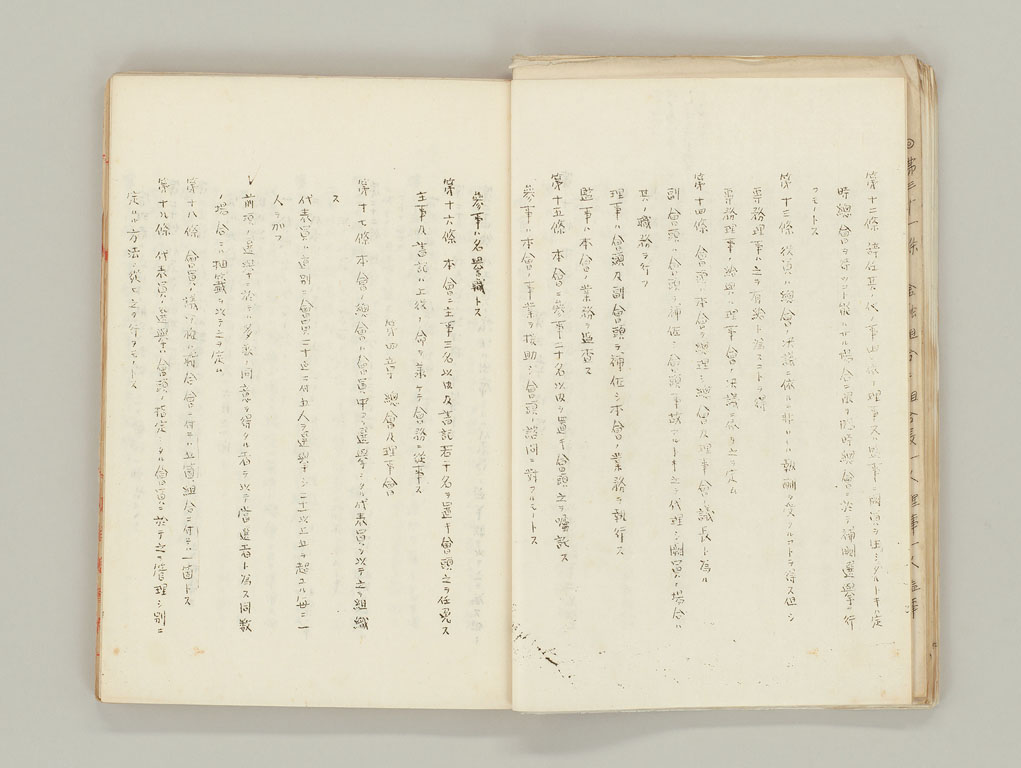 第十二條 辞任其ノ他ノ事由ニ依リ理事又ハ監事ニ闕員ヲ生シタルトキ定
時總會ヲ待ツコト能ハサル場合ニ限リ臨時總會ニ於テ補闕選擧ヲ行
フモノトス
第十三條 役員ハ總會ノ決議ニ依ルニ非サレハ報酬ヲ受クルコトヲ得ス但シ
専務理事ハ之ヲ有給ト為スコトヲ得
専務理事ノ給與ハ理事會ノ決議ニ依リ之ヲ定ム
第十四條 會頭ハ本會ヲ總理シ總會及理事會ノ議長ト為ル
副會頭ハ會頭ヲ補佐シ會頭事故アルトキ之ヲ代理シ闕員ノ場合ハ
其ノ職務ヲ行フ
理事ハ會頭及副會頭ヲ補佐シ本會ノ業務ヲ執行ス
監事ハ本會ノ業務ヲ監査ス
第十五條 本會ニ參事二十名以内ヲ置キ會頭之ヲ囑託ス
參事ハ本會ノ事業ヲ援助シ會頭ノ諮問ニ對フルモノトス
參事ハ名譽職トス
第十六條 本會ニ主事三名以内及書記若干名ヲ置キ會頭之ヲ任免ス
主事及書記ハ上役ノ命ヲ承ケテ會務ニ從事ス
第四章 總會及理事會
第十七條 本會ノ總會ハ會員中ヨリ選擧シタル代表員ヲ以テ之ヲ組織
ス
代表員ハ道別ニ會員二十迄ニ付 人ヲ選擧シ二十以上 ヲ超ユル毎ニ一
人ヲ加フ
前項ノ選擧ニ於テハ多數ノ同意ヲ得タル者ヲ以テ當選者ト為ス同數
ノ場合ハ抽籤ヲ以テ之ヲ定ム
第十八條 會員ノ議決權ハ 合會ニ付 箇組合ニ付キ一箇トス
第十九條 代表員ノ選擧ハ會頭ノ指定シタル會員ニ於テ之ヲ管理シ別ニ
定ムル方法ニ從ヒ之ヲ行フモノトス